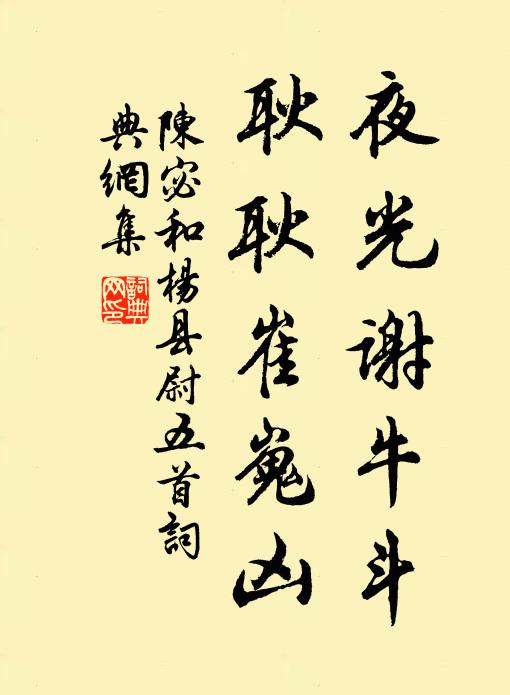 夜光谢牛斗
耿耿崔嵬凶
陳宓和楊县尉五首詞
典網集
詞典
网印